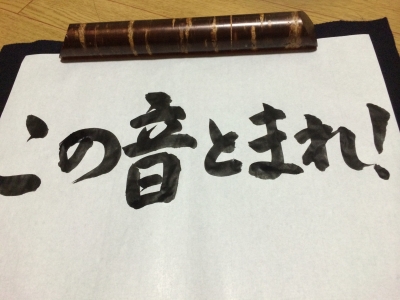 この音とまれ!